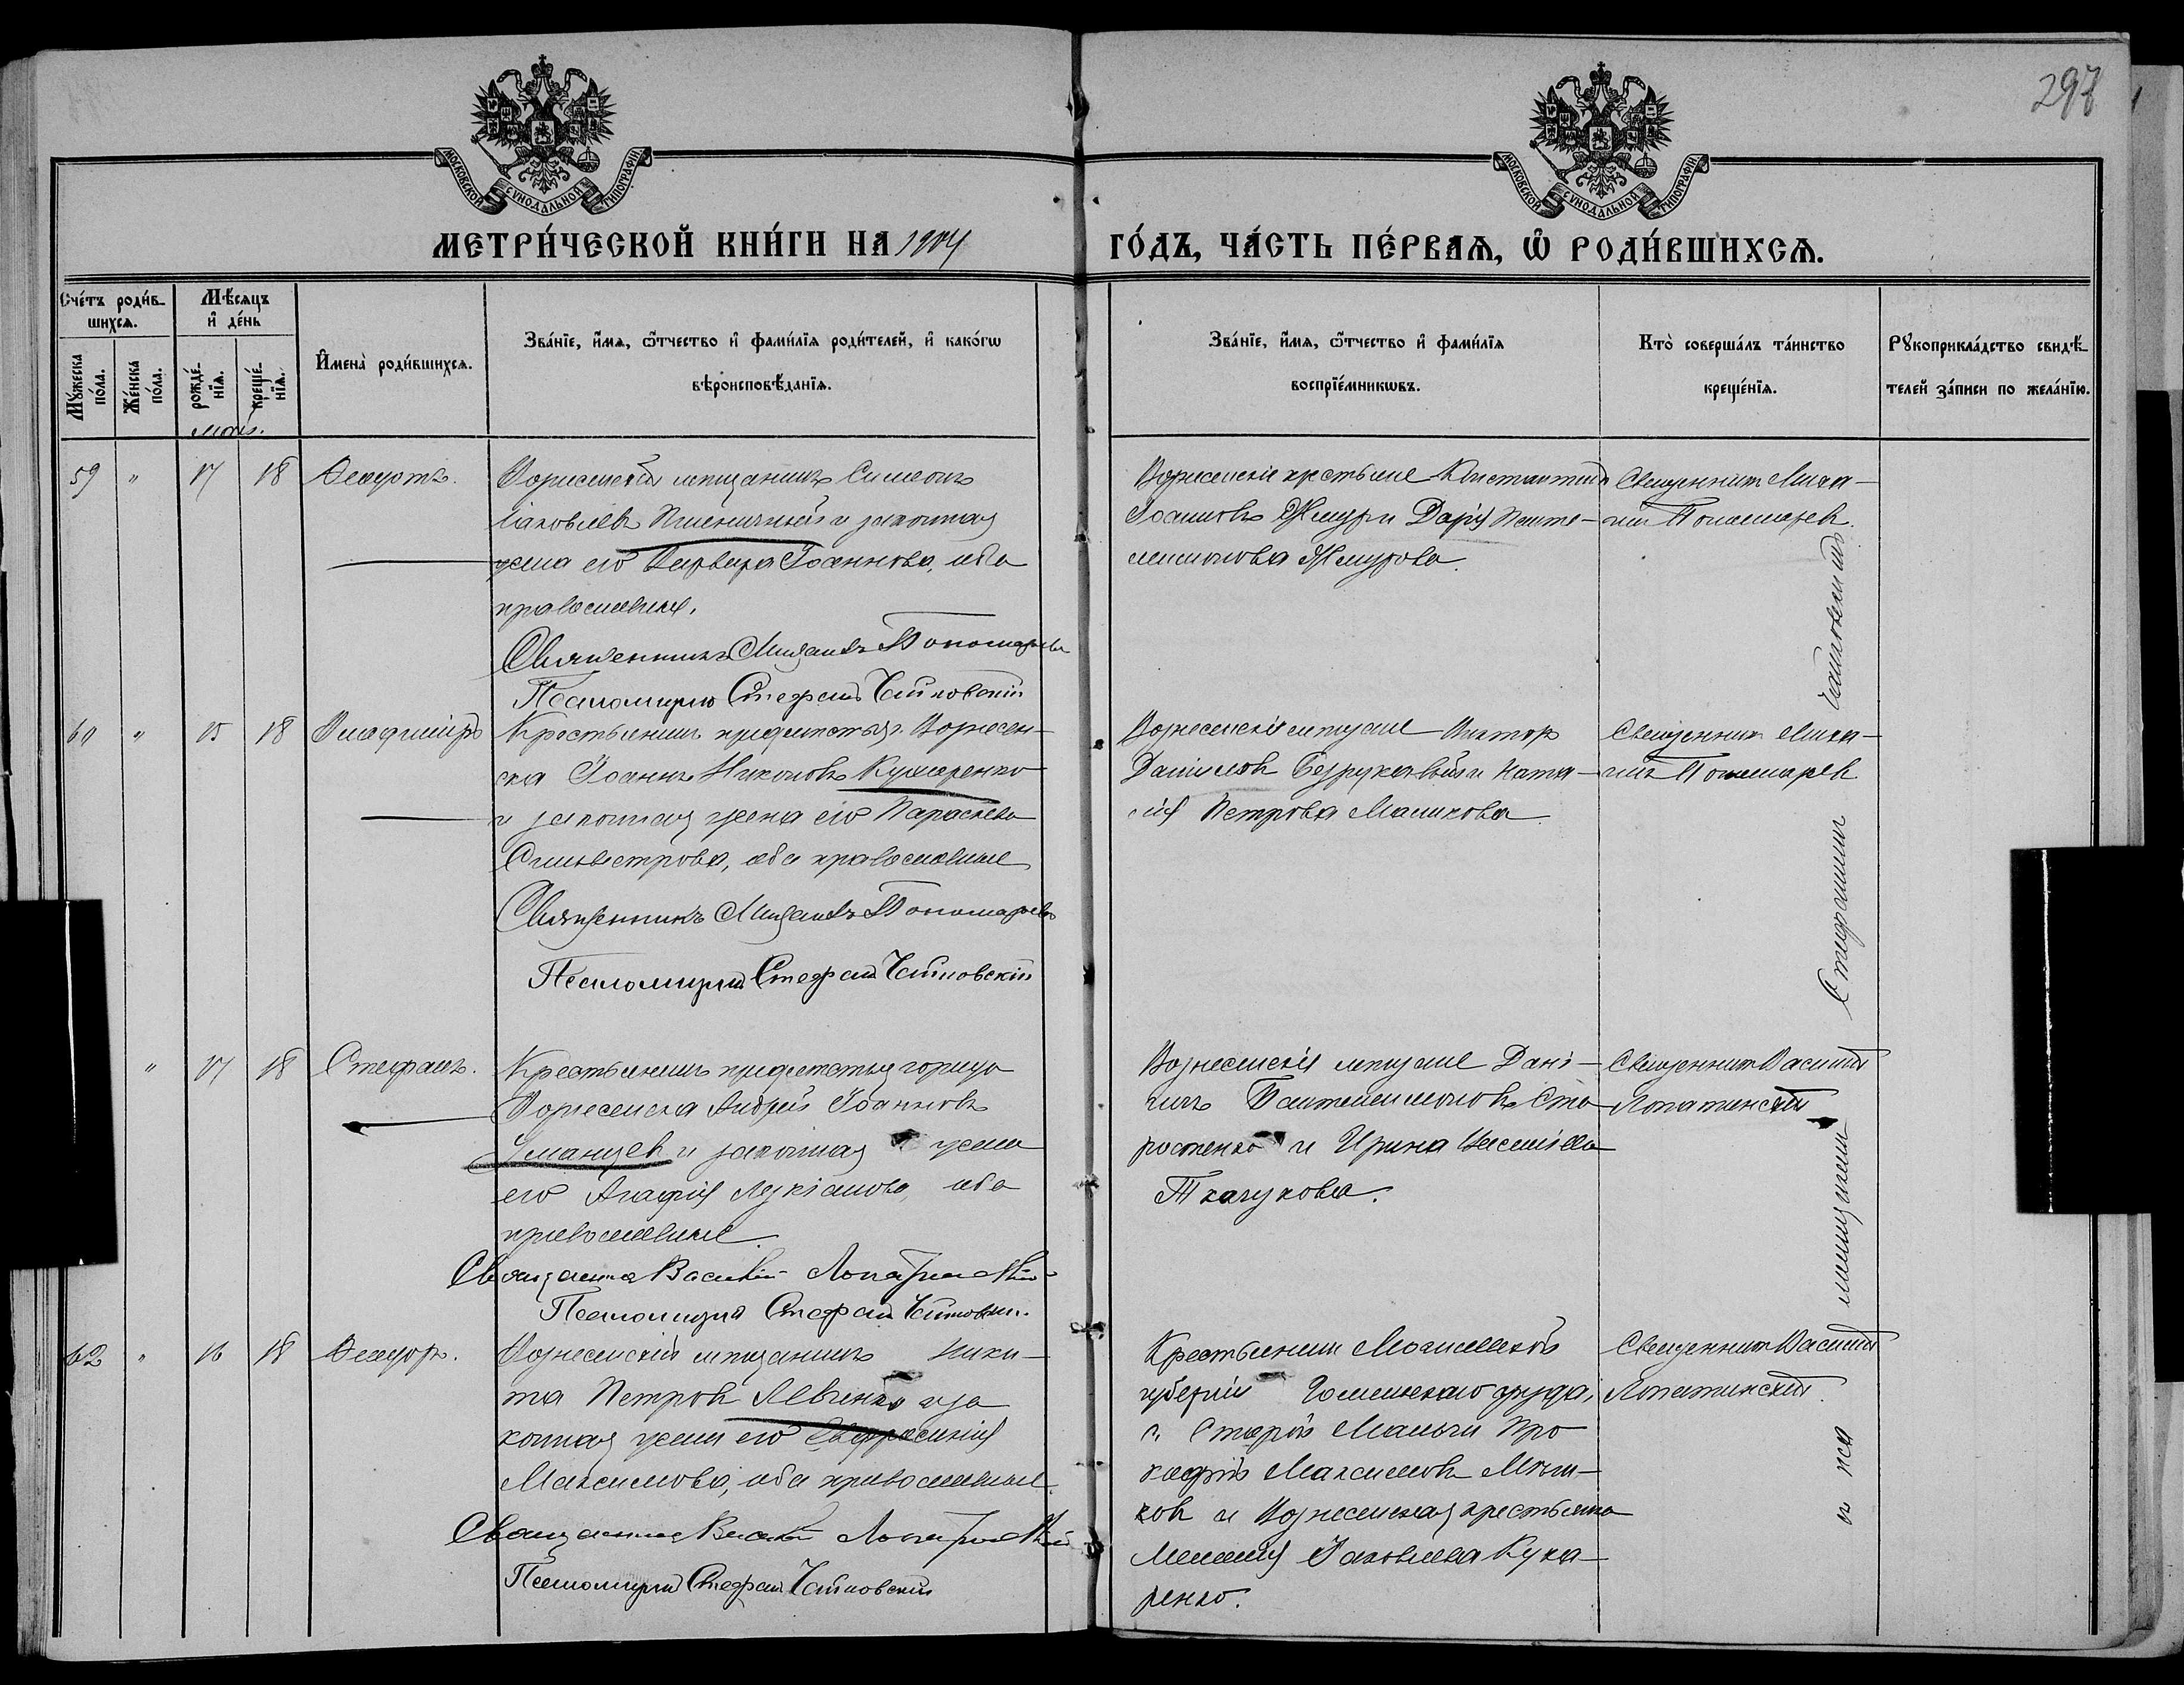 297
МОСКОВСКОЙ СѴНОДАЛЬНОЙ ТИПОГРАФІИ
МОСКОВСКОЙ СѴНОДАЛЬНОЙ ТИПОГРАФІИ
МЕТРИ́ЧЕСКОЙ КНИ́ГИ НА 1904
ГО́ДЪ, ЧА́СТЬ ПЕ́РВАѦ, Ѽ РОДИ́ВШИХСѦ.
Сче́тъ роди́в-
шихсѧ.
Мѣ́сѧцъ
и҆ де́нь
Мꙋ́жеска
по́ла.
Же́нска
по́ла.
рожде́-
нїѧ.
креще́-
нїѧ.
И҆мена̀ роди́вшихсѧ.
Зва́нїе, и҆́мѧ, ѻ҆́тчество и҆ фами́лїѧ роди́телей, и҆ како́гѡ
вѣроисповѣ́данїѧ.
Зва́нїе, и҆́мѧ, ѻ҆́тчество и҆ фами́лїѧ
воспрїе́мникѡвъ.
Кто̀ соверша́лъ та́инство
креще́нїѧ.
Рꙋкоприкла́дство свидѣ́-
телей за́писи по жела́нїю.
Май.
59 " 17 18 Ѳеодотъ.
Вознесенскій мѣщанинъ Симеонъ
Іаковлевъ Пшеничный и законная
жена его Варвара Іоаннова, оба
православные.
Священникъ Михаилъ Пономаревъ
Псаломщикъ Стефанъ Чайковскій
Вознесенскіе крестьяне Константинъ
Іоанновъ Жмуръ и Дарія Панте-
леимонова Жмурова.
Священникъ Миха-
илъ Пономаревъ.
60 " 15 18 Владиміръ
Крестьянинъ предместья г. Вознесен-
ска Іоаннъ Никоновъ Кушаренко
и законная жена его Параскева
Сильвестрова, оба православные
Священникъ Михаилъ Пономаревъ
Псаломщикъ Стефанъ Чайковскій
Вознесенскіе мѣщане Викторъ
Даниловъ Безрукавый и Ната-
лія Петрова Маликова
Священникъ Миха-
илъ Пономаревъ
" 17 18 Стефанъ.
Крестьянинъ предместья города
Вознесенска Андрей Іоанновъ
Уманцевъ и законная жена
его Агафія Лукіанова, оба
православные.
Священникъ Василій Лопатинскій
Псаломщикъ Стефанъ Чайковскій.
Вознесенскіе мѣщане Дані-
илъ Пантелеимоновъ Ста-
ростенко и Ирина Василіева
Ткачукова.
Священникъ Василій
Лопатинскій
62 " 16 18 Ѳеодоръ.
Вознесенскій мѣщанинъ Ники-
та Петровъ Левинко и за
конная жена его Евфросинія
Максимова, оба православные.
Священникъ Василій Лопатинскій
Псаломщикъ Стефанъ Чайковскій
Крестьянинъ Могилевской
губерніи Гомельскаго уѣзда,
с. Старой Мальчи Про
кофій Максимовъ
и Вознесенская крестьянка
Меланія Іаковлева Куха-
ренко.
Священникъ Василій
Лопатинскій.
и пса ломщикомъ Стефаномъ Чайковскимъ